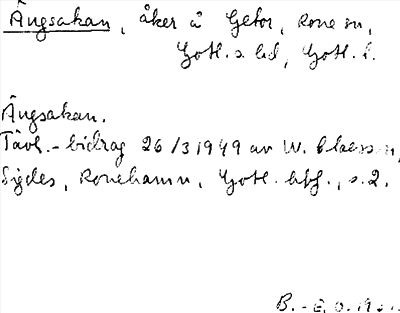 Ängsakan, åker å Getor, Rone sn,
Gotl. s. hd, Gotl. l.
Ängsakan.
Tävl.-bidrag 26/3 1949 av W. Claesson,
Sigdes, Ronehamn, Gotl. , s. 2.
B.-E. O. 1951.